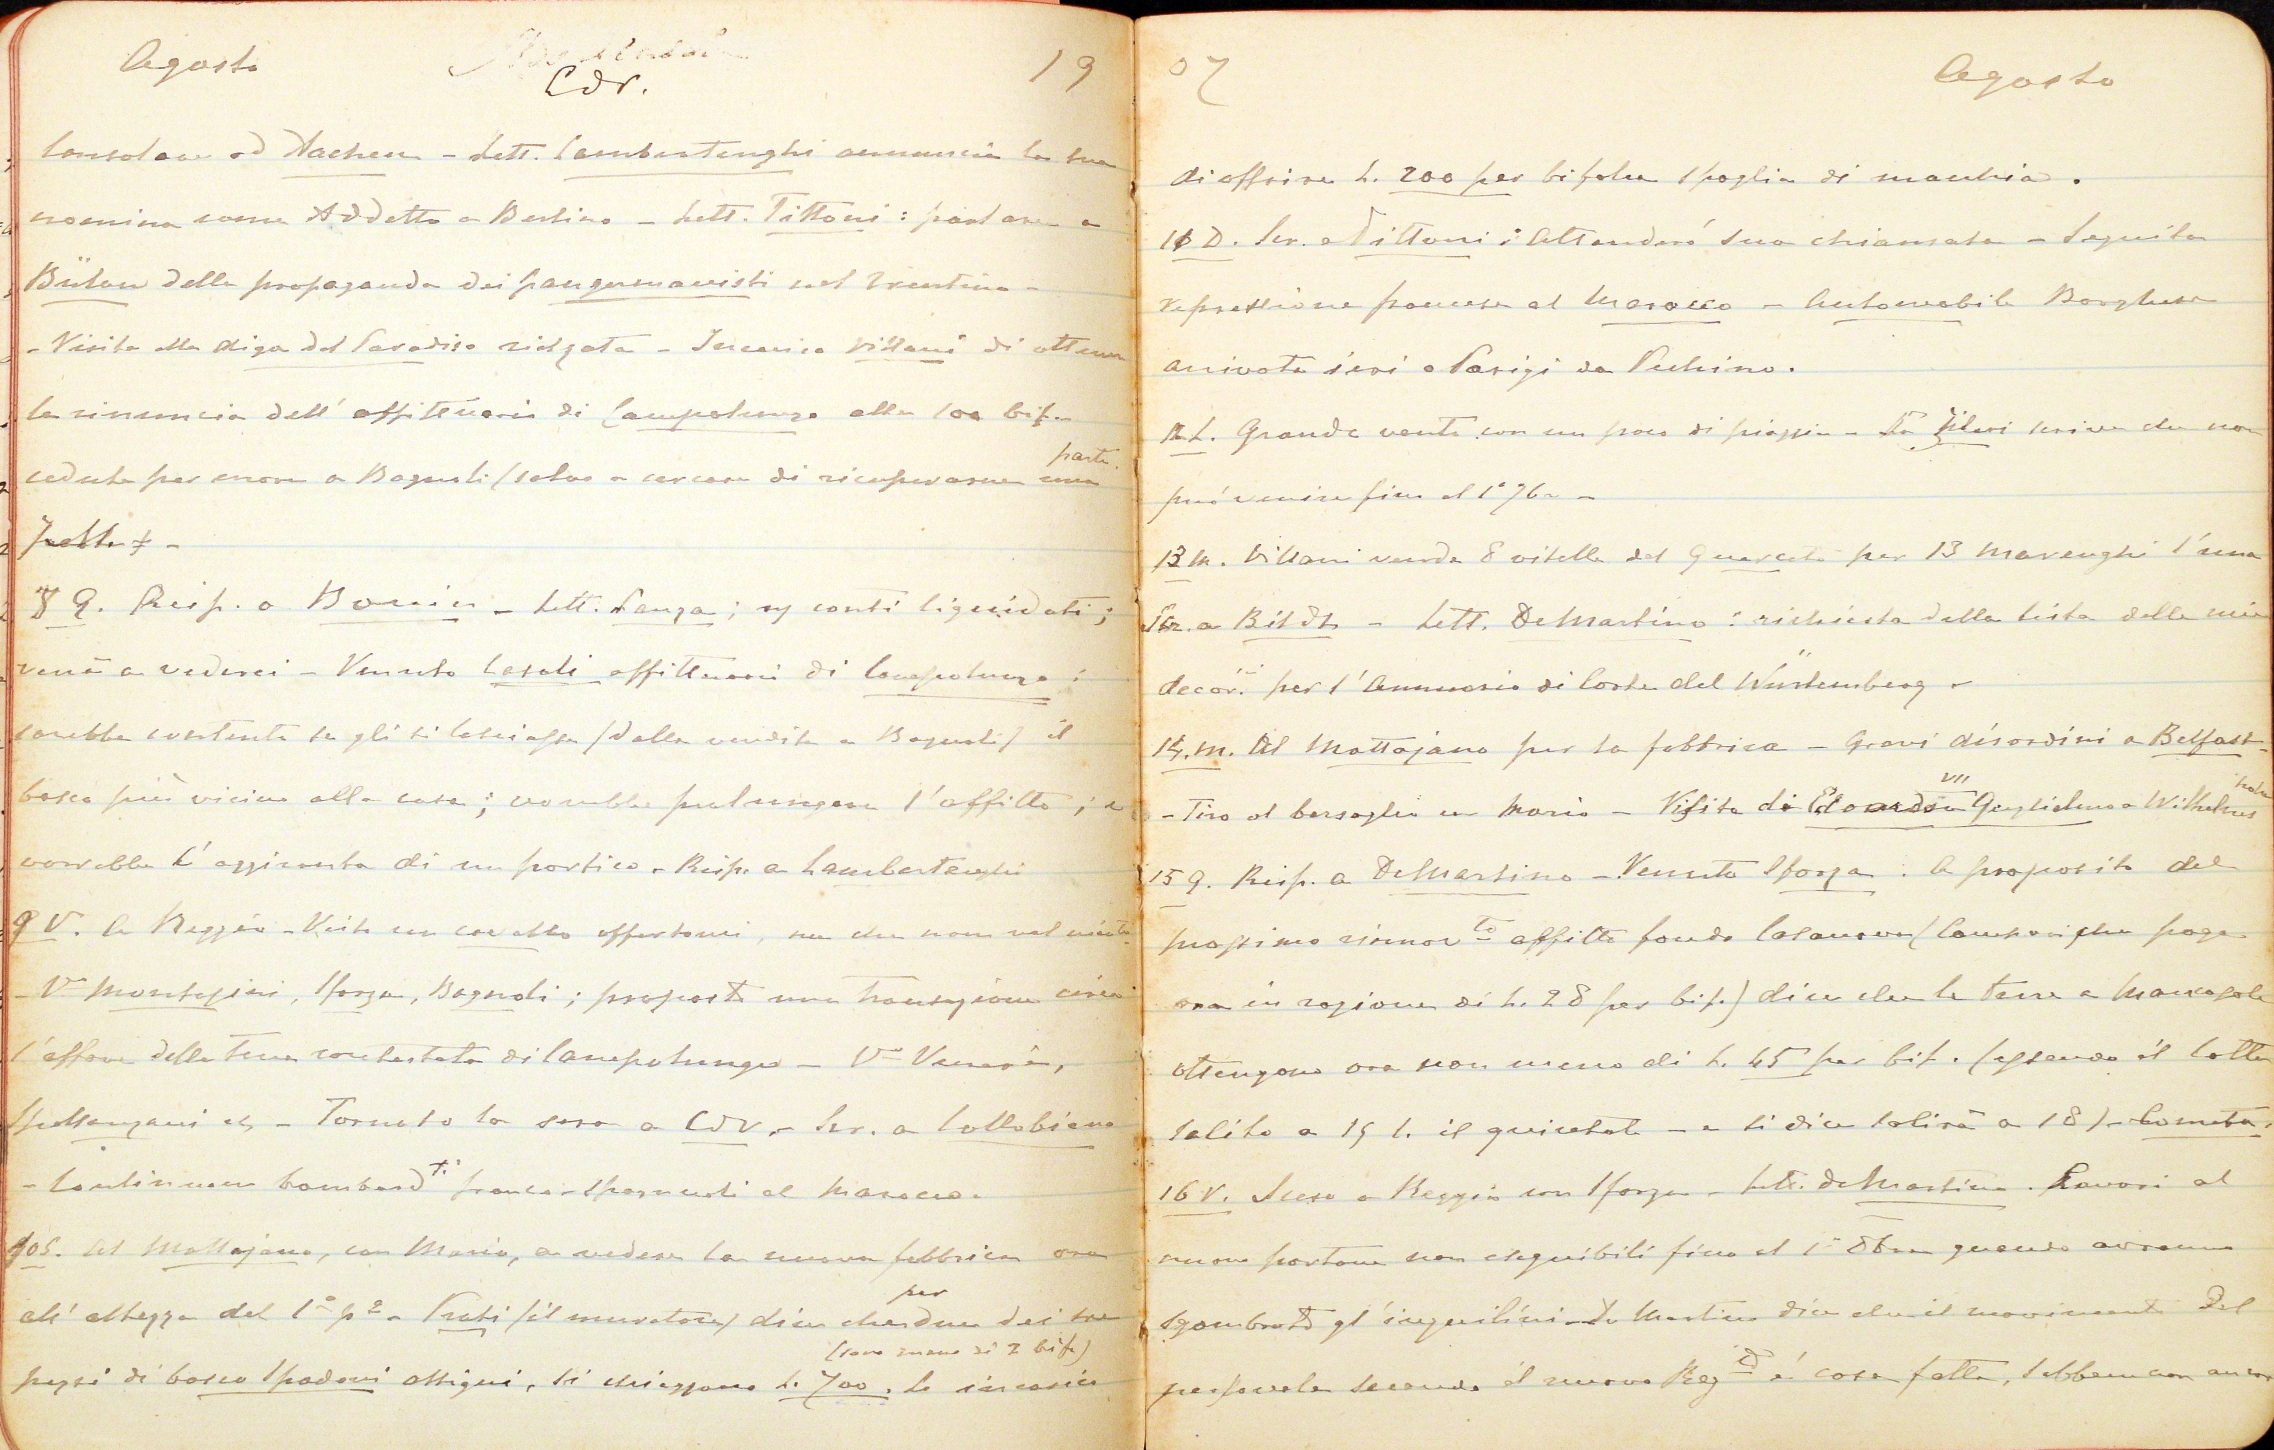 Agosto
Cdv.
19
Consolare ad Aachen - Lett. Lambertenghi annuncia la sua
nomina come Addetto a Berlino - Lett. Tittoni: parlare a
Bülow della propaganda dei pangermanisti nel Trentino -
- Visita alla diga del Paradiso rialzata - Incarico Villani di ottenere
la rinuncia dell' affittuario di Campolungo alle 100 bif.
cedute per errore a Bagnoli (salvo a cercare di ricuperarne una parte.
8 G. Risp. a Bonin - Lett. Lanza; conti liquidati;
verrà a vederci - Venuto Casali affittuario di Campolungo:
sarebbe contento se gli si lasciasse (dalla vendita a Bagnoli) il
bosco più vicino alla casa; vorrebbe prolungare l'affitto; e
vorrebbe l'aggiunta di un portico - Risp. a Lambertenghi
9 V. A Reggio - Visto un cavallo offertomi, ma che non val niente
- Vo Montessori, Sforza, Bagnoli; proposta una transazione circa
l'affare della terra contestata di Campolungo - Vo Venerio,
Spallanzani - Tornato la sera a Cdv. - Scr. a Collobiano
- Continuano bombard.ti franco-spagnuoli al Marocco.
10 S. Al Mattajano, con Mario, a vedere la nuova fabbrica ora
all' altezza del 1o po - Prati (il muratore) dice che per due dei tre
(sono meno di 2 bif.)
pezzi di bosco Spadoni attigui, si chieggono L. 700. Lo incarico
07
Agosto
di offrire L. 200 per bifolca spoglia di macchia.
11 D. Scr. a Tittoni: Attenderò sua chiamata - Seguita
repressione francese al Marocco - Automobile Borghese
arrivata ieri a Parigi da Pechino.
12 L. Grande vento con un poco di pioggia - scrive che non
può venire fino al 1o 7bre -
13 M. Villani vende 8 vitelle del Querceto per 13 marenghi l'una
Scr. a Bildt - Lett. DeMartino: richiesta della lista delle mie
decor.ni per l'Annuario di Corte del Würtemberg -
14. M. Al Mattajano per la fabbrica - Gravi disordini a Belfast -
- Tiro al bersaglio con Mario - Visita di Edoardo VII a Guglielmo a Wilhelmshohe
15 G. Risp. a DeMartino - Venuto Sforza: A proposito del
prossimo rinnov.to affitto fondo Casanova (Campari che paga
ora in ragione di L. 28 per bif.) dice che le terre a Mancasale
ottengono ora non meno di L. 45 per bif. (essendo il latte
salito a 15 L. il quintale - e si dice salirà a 18) - Cometa.
16 V. Sceso a Reggio con Sforza - Lett. deMartino. Lavori al
nuovo portone non eseguibili fino al 1o 8bre quando avranno
sgombrato gl'inquilini - De Martino dice che il movimento del
personale secondo il nuovo Reg.to è cosa fatta, sebbene non ancor